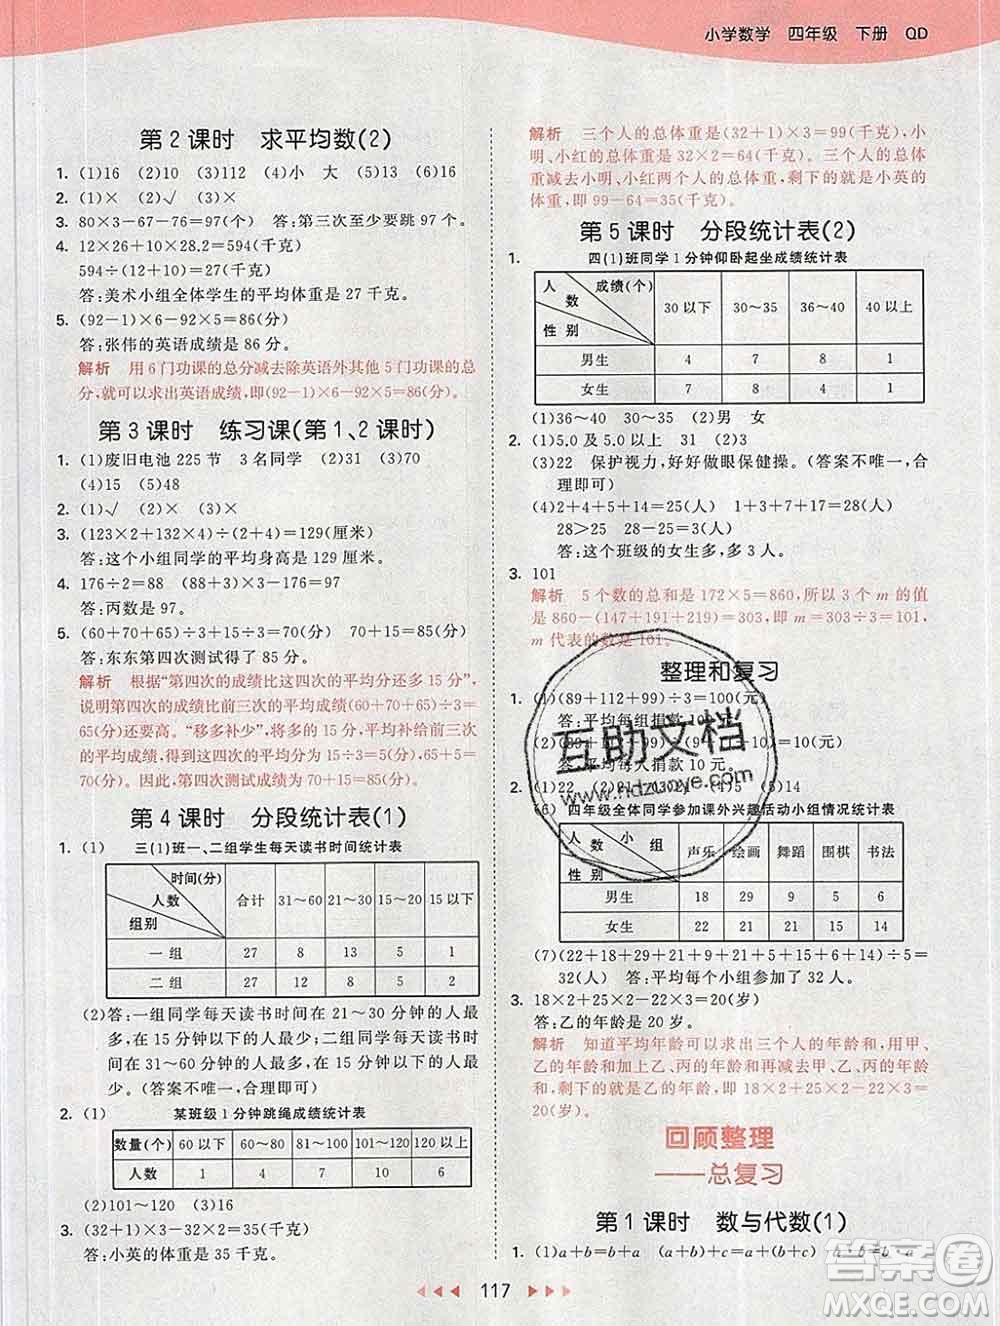 小学数学 四年级 下册 QD
第2课时 求平均数(2)
1. (1)16 (2)10 (3)112 (4)小 大 (5)13 (6)16
2. (1)× (2)√ (3)×
3. 80×3-67-76=97(个) 答:第三次至少要跳 97 个。
4. 12×26+10×28.2=594(千克)
594÷(12+10)=27(千克)
答:美术小组全体学生的平均体重是 27 千克。
5. (92-1)×6-92×5=86(分)
答:张伟的英语成绩是 86 分。
解析 用 6 门功课的总分减去除英语外其他 5 门功课的总
分,就可以求出英语成绩,即(92-1)×6-92×5=86(分)。
第3课时 练习课(第1、2课时)
1. (1)废旧电池 225 节 3 名同学 (2)31 (3)70
(4)15 (5)48
2. (1)√ (2)× (3)×
3. (123×2+132×4)÷(2+4)=129(厘米)
答:这个小组同学的平均身高是 129 厘米。
4. 176÷2=88 (88+9)=97
答:丙数是 97。
5. (60+70+65)÷3+15÷3=70(分) 70+15=85(分)
答:东东第四次测试得了 85 分。
解析 根据“第四次的成绩比这四次的平均分还多 15 分”,
说明第四次的成绩比前三次的平均成绩(60+70+65)÷3=
65(分)还要高。“移多补少”,将多的 15 分,平均补给前三次
的平均成绩,得到四次的平均分为 15÷3=5(分),65+5=70
(分)。因此,第四次测试成绩为 70+15=85(分)。
第4课时 分段统计表(1)
1. (1) 三(1)班一、二组学生每天读书时间统计表
时间(分) 人数 组别 合计 31~60 21~30 15~20 15以下
一 组 27 8 13 5 1
二 组 27 13 8 5 1
(2)答:一组同学每天读书时间在 21~30 分钟的人最
多,15 分钟以下的人最少;二组同学每天读书时间
在 31~60 分钟的人最多,15 分钟以下的人最
少。(答案不唯一,合理即可)
2. (1) 某班级 1 分钟跳绳成绩统计表
数量(个) 60 以下 60~80 81~100 101~120 120 以上
人数 1 4 7 10 6
(2)101~120 (3)16
3. (32+1)×3-32×2=35(千克)
答:小英的体重是 35 千克。
解析 三个人的总体重是(32+1)×3=99(千克),小
明、小红的总体重是 32×2=64(千克)。三个人的总体
重减去小明、小红两个人的总体重,剩下的就是小英的
体重,即 99-64=35(千克)。
第5课时 分段统计表(2)
1. 四(1)班同学 1 分钟仰卧起坐成绩统计表
人数 成绩(个) 性别 30 以下 30~35 36~40 40 以上
男生 4 7 8 4
女生 2 8 7 4
(1)36~40 30~35 (2)男 女
2. (1)5.0 及 5.0 以上 31 (2)3
(3)22 保护视力,好好做眼保健操。(答案不唯一,合
理即可)
(4)2+4+5+14=25(人) 1+3+7+17=28(人)
28>25 28-25=3(人)
答:这个班级的女生多,多 3 人。
3. 101
解析 5 个数的总和是 172×5=860,所以 3 个 m 的值
是 860-(147+191+219)=303,即 m=303÷3=101,
m 代表的数是 101。
整理和复习
1. (1)(89+112+99)÷3=100(元)
答:平均每组捐款 100 元。
答:平均每人捐款 10 元。
(6) 四年级全体同学参加课外兴趣活动小组情况统计表
人数 小组 性别 声乐 绘画 舞蹈 围棋 书法
男生 18 29 4 19 18
女生 22 9 15 2 14
答:平均每个小组参加了 32 人。
3. 18×2+25×2-22×3=20(岁)
答:乙的年龄是 20 岁。
解析 知道平均年龄可以求出三个人的年龄和,用甲、
乙的年龄和加上乙、丙的年龄和再减去甲、乙、丙的年龄
和,剩下的就是乙的年龄,即 18×2+25×2-22×3=
20(岁)。
回顾整理
——总复习
第1课时 数与代数(1)
1. (1)a+b=b+a
117
互助文档
www.hdzuoye.com
答案圈
MXQE.COM